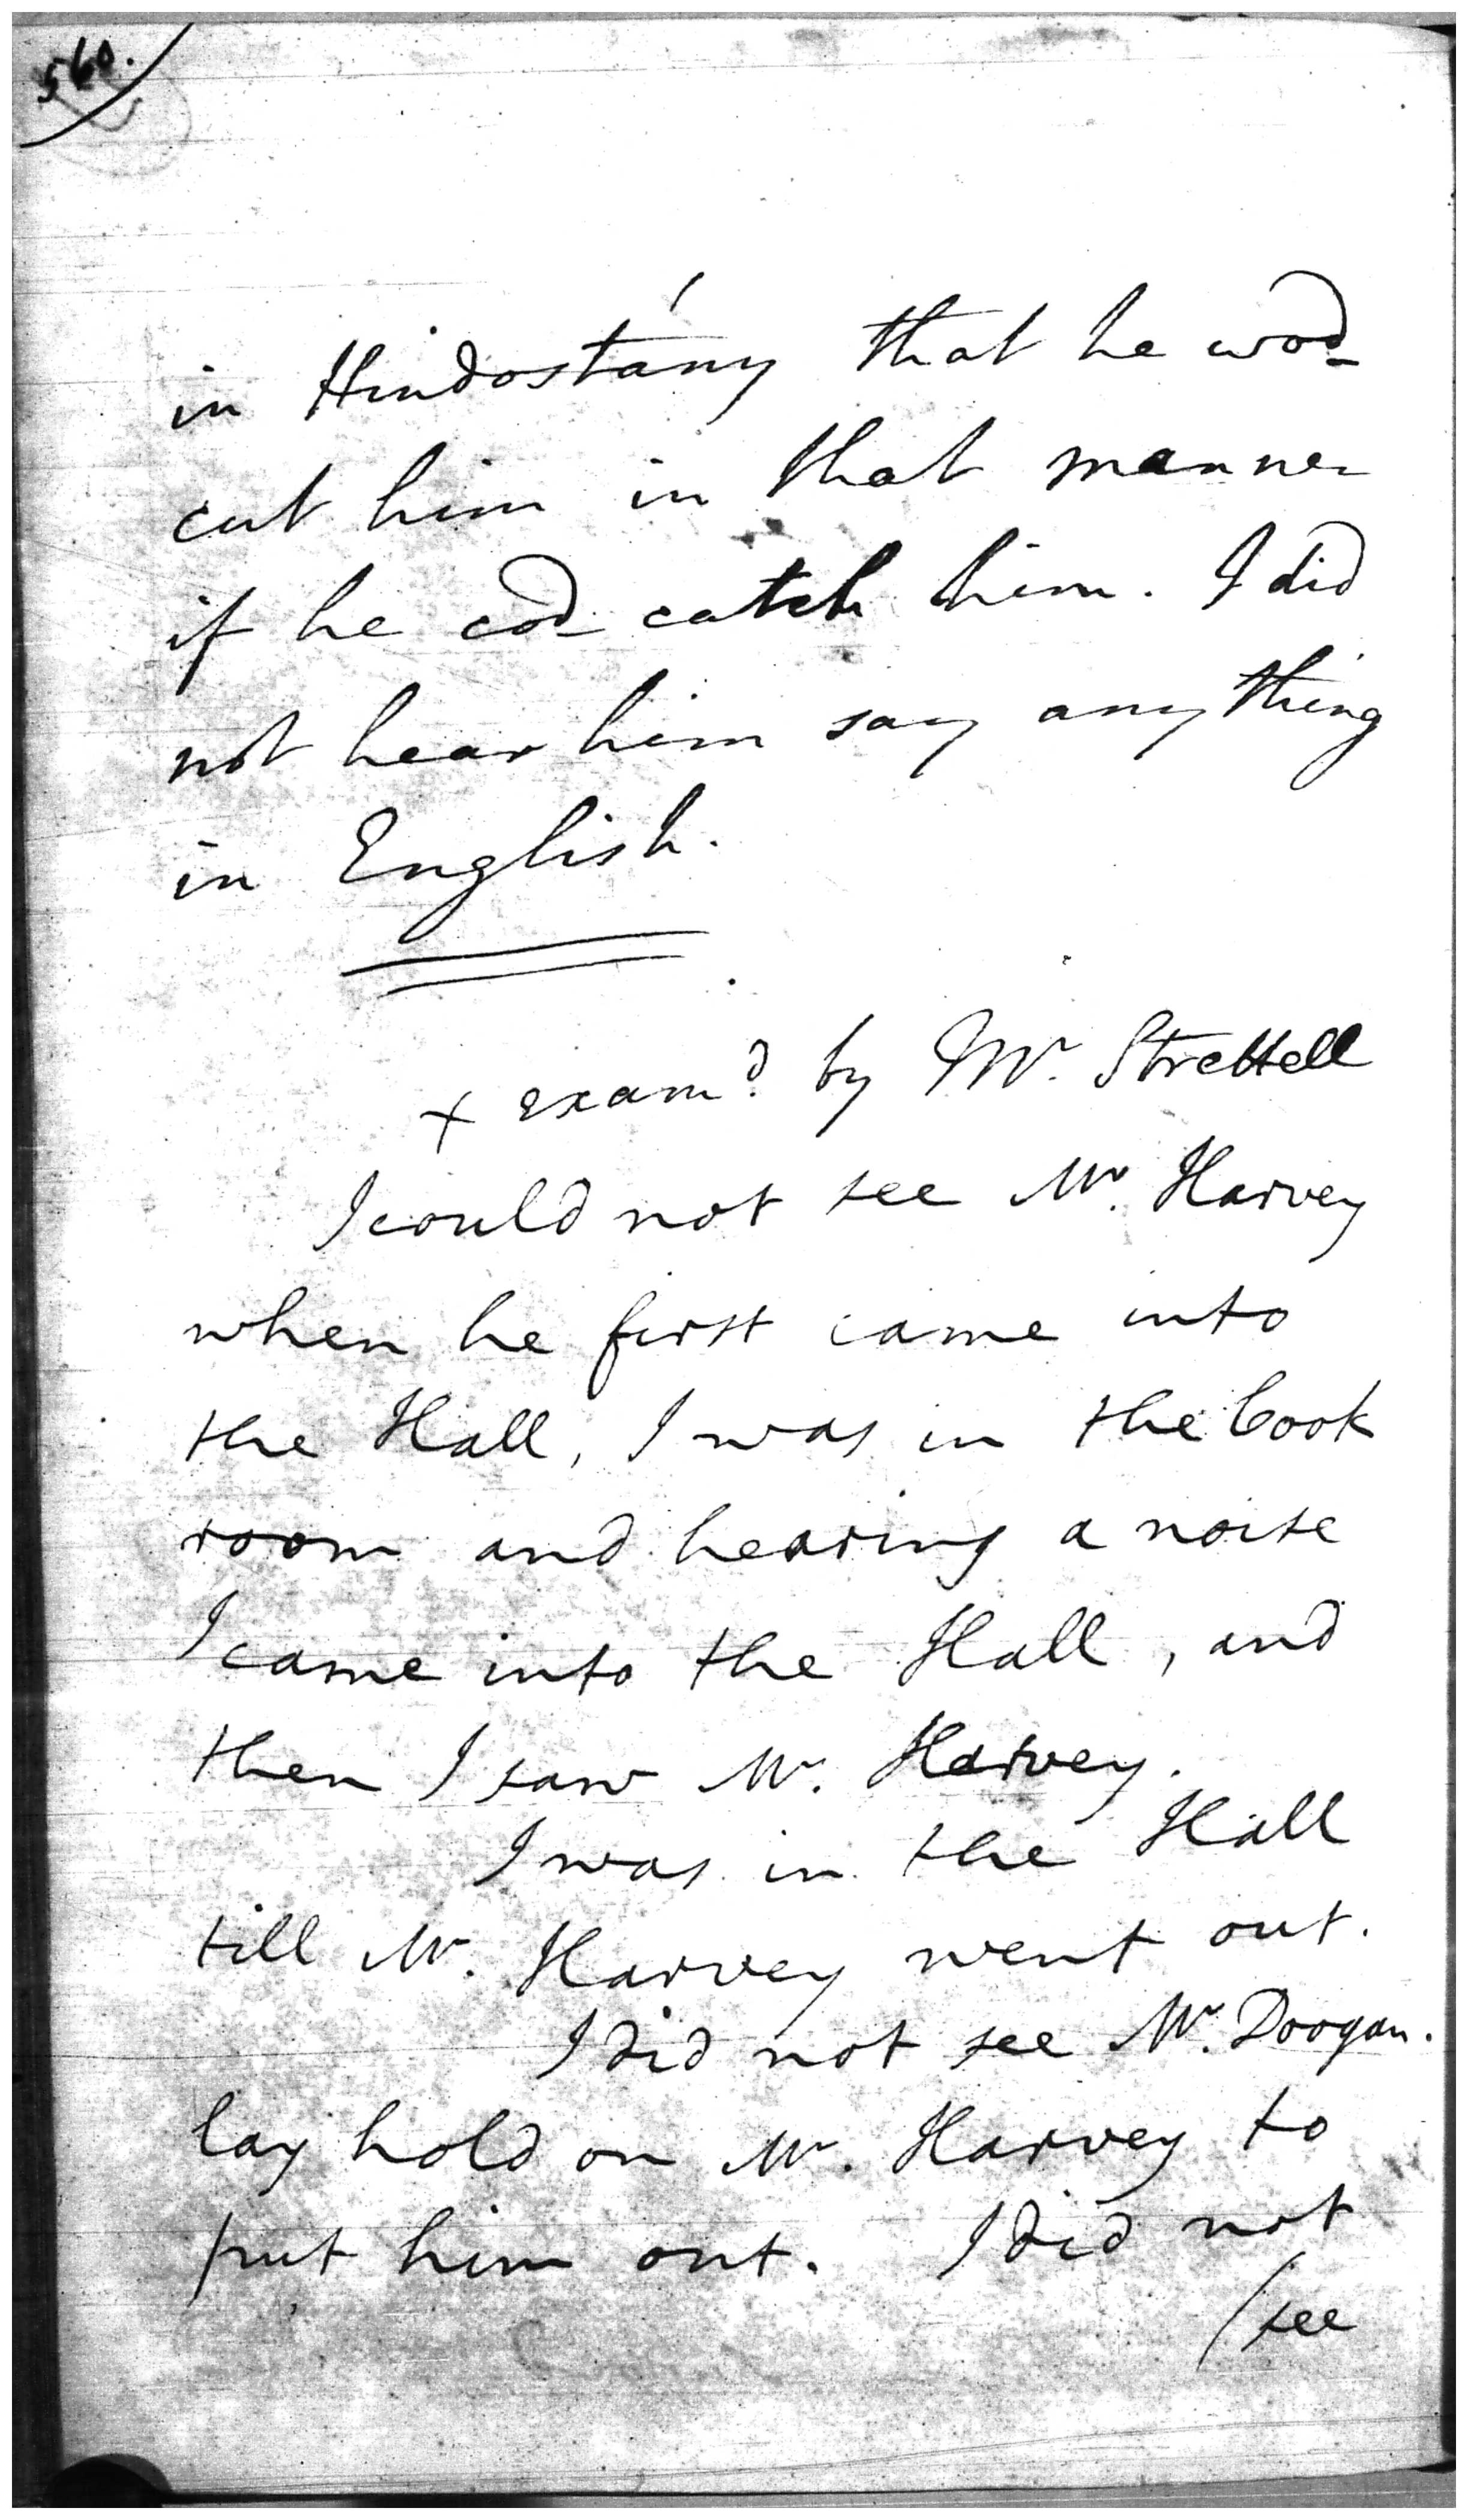 560.
in Hindostány that he wod
cut him in that manner
if he cod catch him. I did
not hear him say any thing
in English.
x examd. by Mr. Strettell
I could not see Mr. Harvey
when he first came into
the Hall, I was in the Cook
room and hearing a noise
I came into the Hall, and
then I saw Mr. Harvey.
I was in the Hall
till Mr. Harvey went out.
I did not see Mr. Doogan.
lay hold on Mr. Harvey to
put him out. I did not
/see